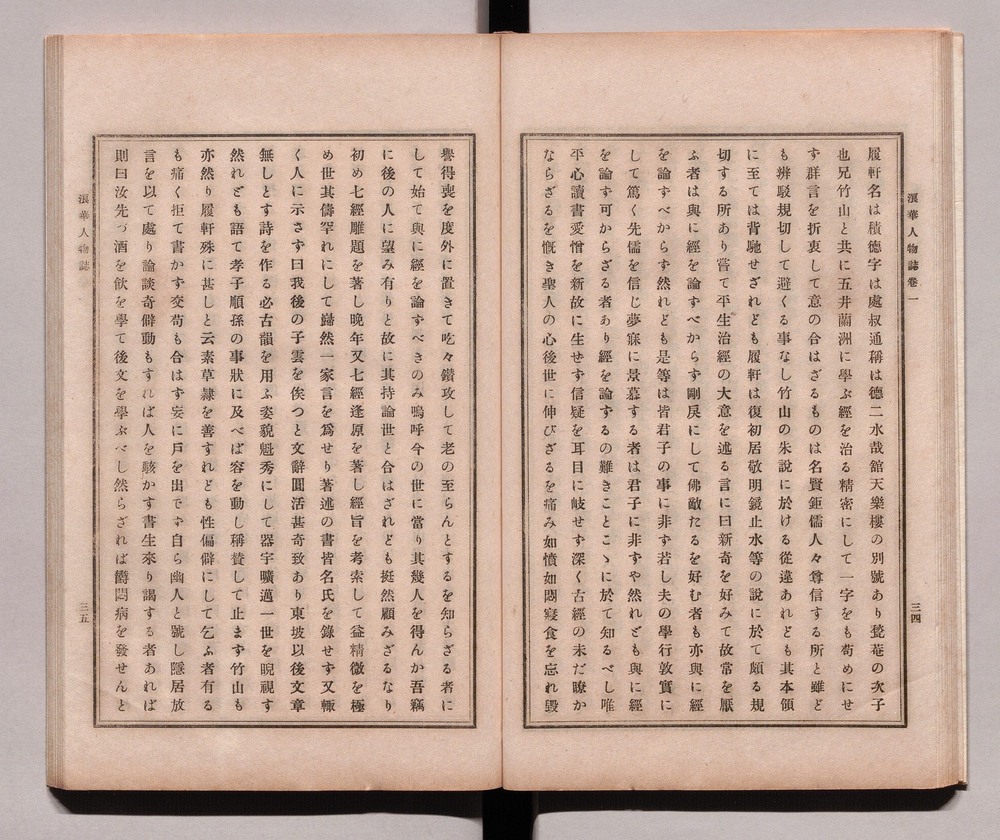 浪華人物誌卷一
三四
履軒名は積德字は處叔通稱は德二水哉館天樂樓の別號あり甃菴の次子
也兄竹山と共に五井蘭洲に學ぶ經を治る精密にして一字をも苟めにせ
す群言を折衷して意の合はざるものは名賢鉅儒人々尊信する所と雖ど
も辨駁規切して避くる事なし竹山の朱說に於ける從違あれども其本領
に至ては背馳せざれども履軒は復初居敬明鏡止水等の說に於て頗る規
切する所あり嘗て平生治經の大意を述る言に曰新奇を好みて故常を厭
ふ者は與に經を論ずべからす剛戾にして佛敵たるを好む者も亦與に經
を論ずべからす然れども是等は皆君子の事に非す若し夫の學行敦實に
して篤く先儒を信じ夢寐に景慕する者は君子に非すや然れども與に經
を論ず可からざる者あり經を論ずるの難きことこゝに於て知るべし唯
平心讀書愛憎を新故に生せす信疑を耳目に岐せす深く古經の未だ瞭か
ならざるを慨き聖人の心後世に伸びざるを痛み如憤如悶寢食を忘れ毀
譽得喪を度外に置きて吃々鑽攻して老の至らんとするを知らざる者に
して始て與に經を論ずべきのみ嗚呼今の世に當り其幾人を得んか吾竊
に後の人に望み有りと故に其持論世と合はざれども挺然顧みざるなり
初め七經雕題を著し晚年又七經逢原を著し經旨を考索して益精微を極
め世其儔罕れにして巋然一家言を爲せり著述の書皆名氏を錄せす又輙
く人に示さす曰我後の子雲を俟つと文辭圓活甚奇致あり東坡以後文章
無しとす詩を作る必古韻を用ふ姿貌魁秀にして器宇曠邁一世を睨視す
然れども語て孝子順孫の事狀に及べば容を動し稱賛して止ます竹山も
亦然り履軒殊に甚しと云素草隸を善すれども性偏僻にして乞ふ者有る
も痛く拒て書かす交苟も合はす妄に戶を出です自ら幽人と號し隱居放
言を以て處り論談奇僻動もすれば人を駭かす書生來り謁する者あれば
則曰汝先づ酒を飮を學て後文を學ぶべし然らざれば欝悶病を發せんと
浪華人物誌
三五